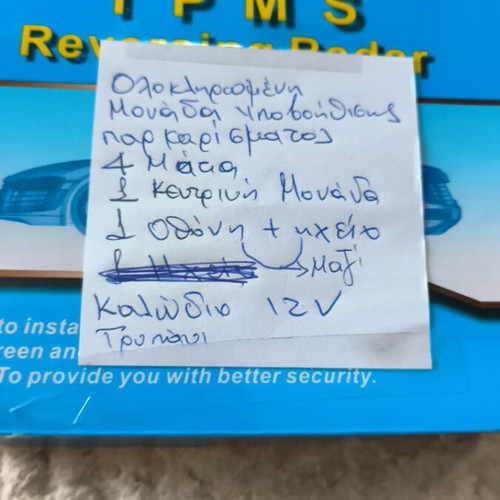 TPMS
Reversing Radar
Ολοκληρωμένη
Μονάδα Υποβοήθησης
παρκαρίσματος
4 Μάτια
1 Κεντρική Μονάδα
1 Οθόνη + ηχείο
Μαζί
Καλώδιο 12V
Τρυπάνι
to insta
reen an
To provide you with better security.